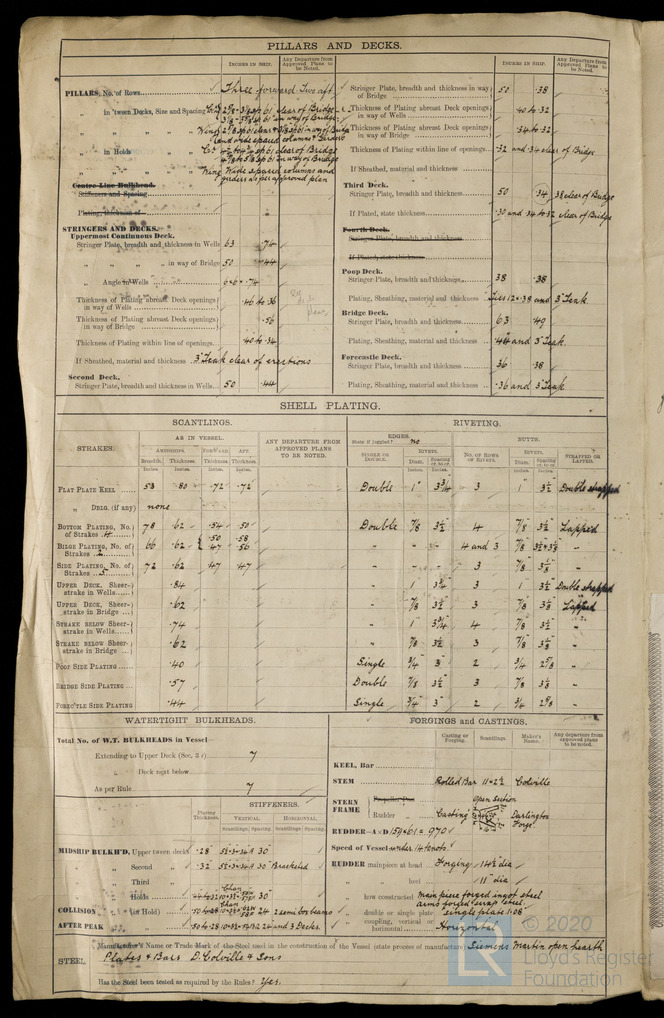 PILLARS AND DECKS.
INCHES IN SHIP.
Any Departure from Approved Plans to be Noted.
PILLARS, No. of Rows Three forward Two aft
in 'tween Decks, Size and Spacing
clear of Bridge
in way of Bridge
in Holds
clear of Bridge
in way of Bridge
Wide spaced columns and
girders as per approved plan
Centre Line Bulkhead.
Stiffeners and Spacing
Plating, thickness of
STRINGERS AND DECKS.
Uppermost Continuous Deck.
Stringer Plate, breadth and thickness in Wells 63 .74
„ „ „ in way of Bridge 50 .44
„ Angle in Wells 6 × 6 × .74
Thickness of Plating abreast Deck openings in way of Wells .46 to .36
Thickness of Plating abreast Deck openings in way of Bridge .36
Thickness of Plating within line of openings .40 to .34
If Sheathed, material and thickness 3" Teak clear of erections
Second Deck.
Stringer Plate, breadth and thickness in Wells 50 .44
INCHES IN SHIP.
Any Departure from Approved Plans to be Noted.
Stringer Plate, breadth and thickness in way of Bridge 50 .38
Thickness of Plating abreast Deck openings in way of Wells .40 to .32
Thickness of Plating abreast Deck openings in way of Bridge .34 to .32
Thickness of Plating within line of openings .32 and .34 clear of Bridge
If Sheathed, material and thickness
Third Deck.
Stringer Plate, breadth and thickness 50 .34 .38 clear of Bridge
If Plated, state thickness .30 and .34 to .32 clear of Bridge
Fourth Deck.
Stringer Plate, breadth and thickness
If Plated, state thickness
Poop Deck.
Stringer Plate, breadth and thickness 38 .38
Plating, Sheathing, material and thickness Ties 12 × .38 and 3" Teak
Bridge Deck.
Stringer Plate, breadth and thickness 63 .49
Plating, Sheathing, material and thickness .44 and 3" Teak
Forecastle Deck.
Stringer Plate, breadth and thickness 36 .38
Plating, Sheathing, material and thickness .36 and 3" Teak
SHELL PLATING.
SCANTLINGS.
RIVETING.
STRAKES.
AS IN VESSEL.
AMIDSHIPS. FORWARD. AFT.
Breadth. Thickness. Thickness. Thickness.
Inches. Inches. Inches. Inches.
ANY DEPARTURE FROM APPROVED PLANS TO BE NOTED.
EDGES.
State if joggled? no
SINGLE OR DOUBLE.
RIVETS.
Diam. Spacing cr. to cr.
Inches. Inches.
BUTTS.
NO. OF ROWS OF RIVETS.
RIVETS.
Diam. Spacing cr. to cr.
Inches. Inches.
STRAPPED OR LAPPED.
FLAT PLATE KEEL 53 .80 .72 .72 Double 1" 3¾" 3 1" 3½" Double strapped
„ DBLG. (if any) none
BOTTOM PLATING, No. of Strakes 4 78 .62 .54 .50 Double ⅞ 3½" 4 ⅞" 3½" Lapped
BILGE PLATING, No. of Strakes 2 66 .62 .50 .47 .58 .56 „ - - 4 and 3 ⅞"
SIDE PLATING, No. of Strakes 5 72 .62 .47 .47 „ - - 3 ⅞" 3⅛" „
UPPER DECK, Sheer-strake in Wells .84 „ 1" 3¾" 3 1" 3½" Double strapped
UPPER DECK, Sheer-strake in Bridge .62 „ ⅞" 3½" 3 ⅞" 3⅛" Lapped
STRAKE BELOW Sheer-strake in Wells .74 „ 1" 3¾" 4 ⅞" 3½" „
STRAKE BELOW Sheer-strake in Bridge .62 „ ⅞" 3½" 3 ⅞" 3⅛" „
POOP SIDE PLATING .40 Single ¾" 3" 2 ¾" 2⅝" „
BRIDGE SIDE PLATING .57 Double ⅞" 3½" 3 ⅞" 3⅛" „
FORE'CTLE SIDE PLATING .44 Single ¾" 3" 2 ¾" 2⅝" „
WATERTIGHT BULKHEADS.
Total No. of W.T. BULKHEADS in Vessel—
Extending to Upper Deck (Sec. 3 c) 7
„ Deck next below
As per Rule 7
Plating Thickness.
STIFFENERS.
VERTICAL. HORIZONTAL.
Scantlings. Spacing. Scantlings. Spacing.
MIDSHIP BULKH'D, Upper tween decks .28 30"
„ Second „ .32 30" Bracketed
„ Third „
„ Holds 30"
COLLISION „ (in Hold) .50 to .28 24" 2 semi box beams
AFTER PEAK „ .50 to .28 24 and 3 Decks.
FORGINGS and CASTINGS.
Casting or Forging. Scantlings. Maker's Name. Any departure from approved plans to be noted.
KEEL, Bar
STEM Rolled Bar 11 × 2½ Colville
STERN FRAME
Propeller Post
Open section
Rudder „ Casting Darlington Forge
RUDDER—A × D 159 × 6.1 = 970
Speed of Vessel under 14 knots
RUDDER mainpiece at head Forging 14½" dia
„ heel 11" dia
how constructed main piece forged ingot steel
arms forged scrap steel
double or single plate single plate 1.08
coupling, vertical or horizontal Horizontal
STEEL.
Manufacturer's Name or Trade Mark of the Steel used in the construction of the Vessel (state process of manufacture) Siemens Martin open hearth
Plates & Bars D. Colville & Sons
Has the Steel been tested as required by the Rules? Yes.
© 2020
Lloyd's Register
Foundation
LR